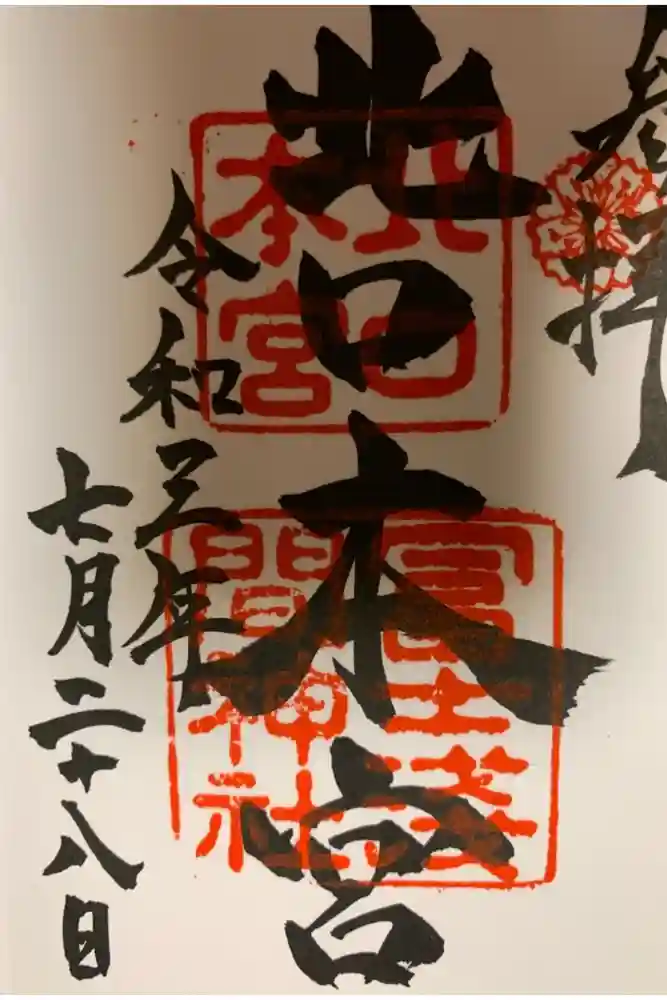 奉拝
北口本宮
令和三年
七月二十八日
北口
本宮
冨士浅
間神社